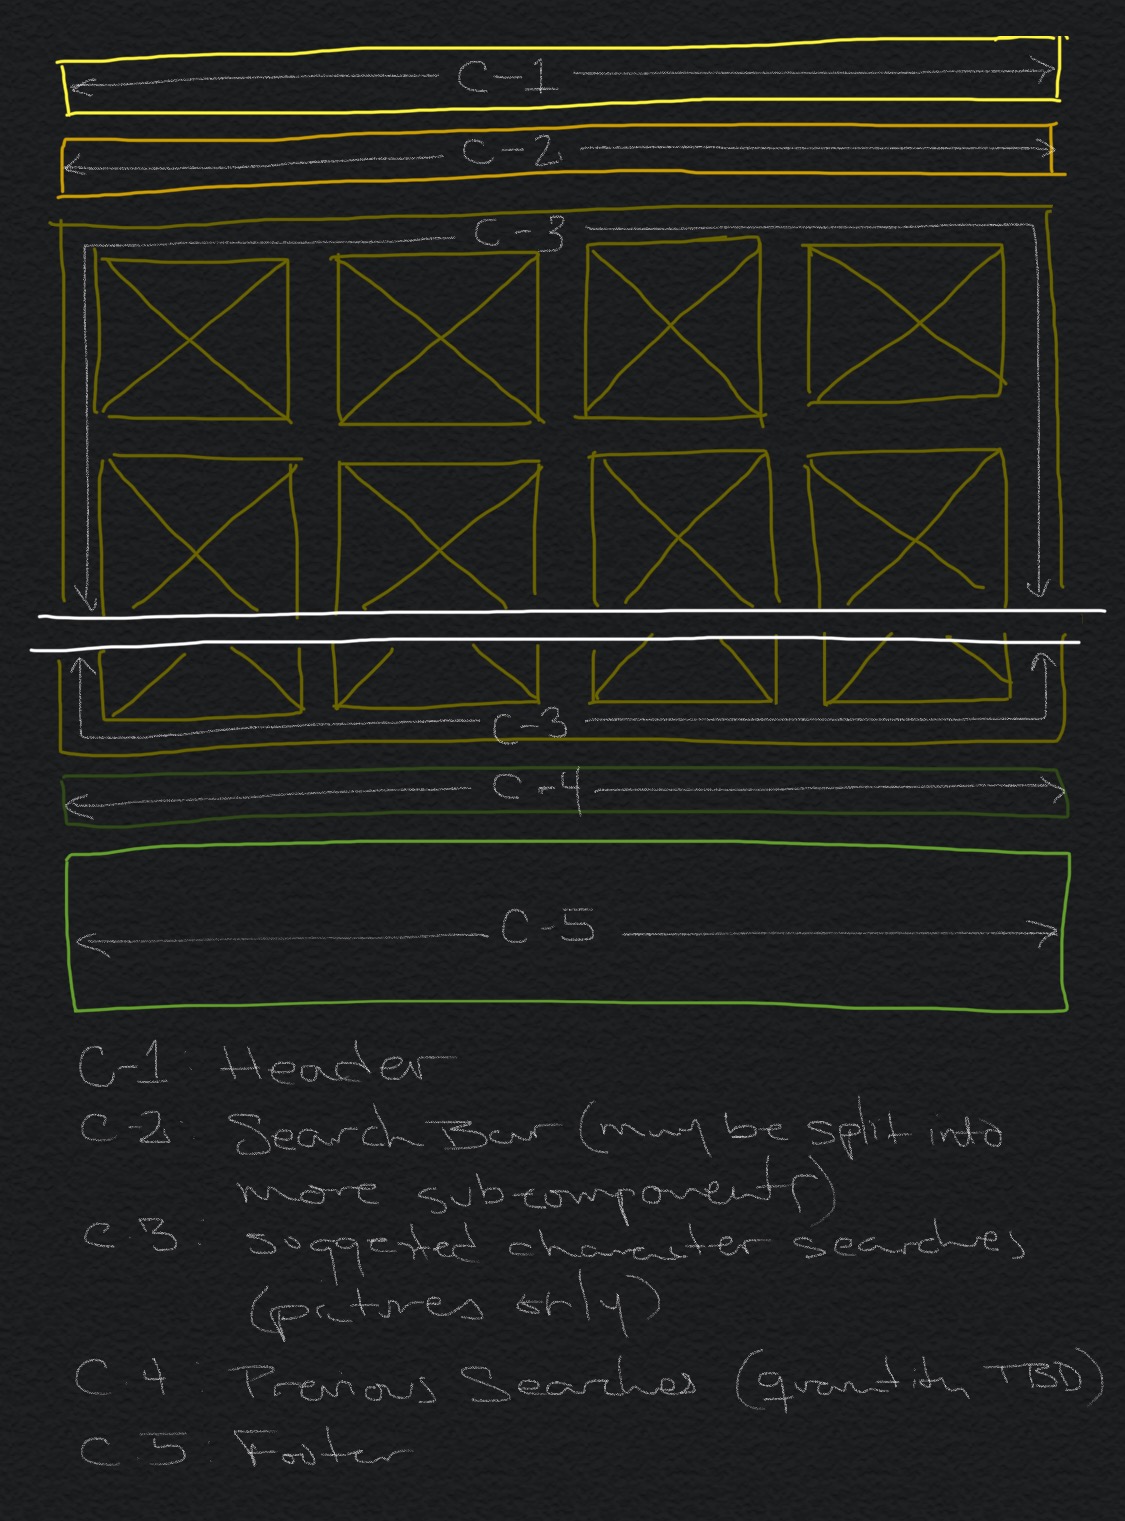 C-1
C-2
C-3
C-3
C-4
C-5
C-1: Header
C-2: Search Bar (may be split into
more subcomponents)
C-3: suggested character searches
(pictures only)
C-4: Previous Searches (quantity TBD)
C-5: Footer